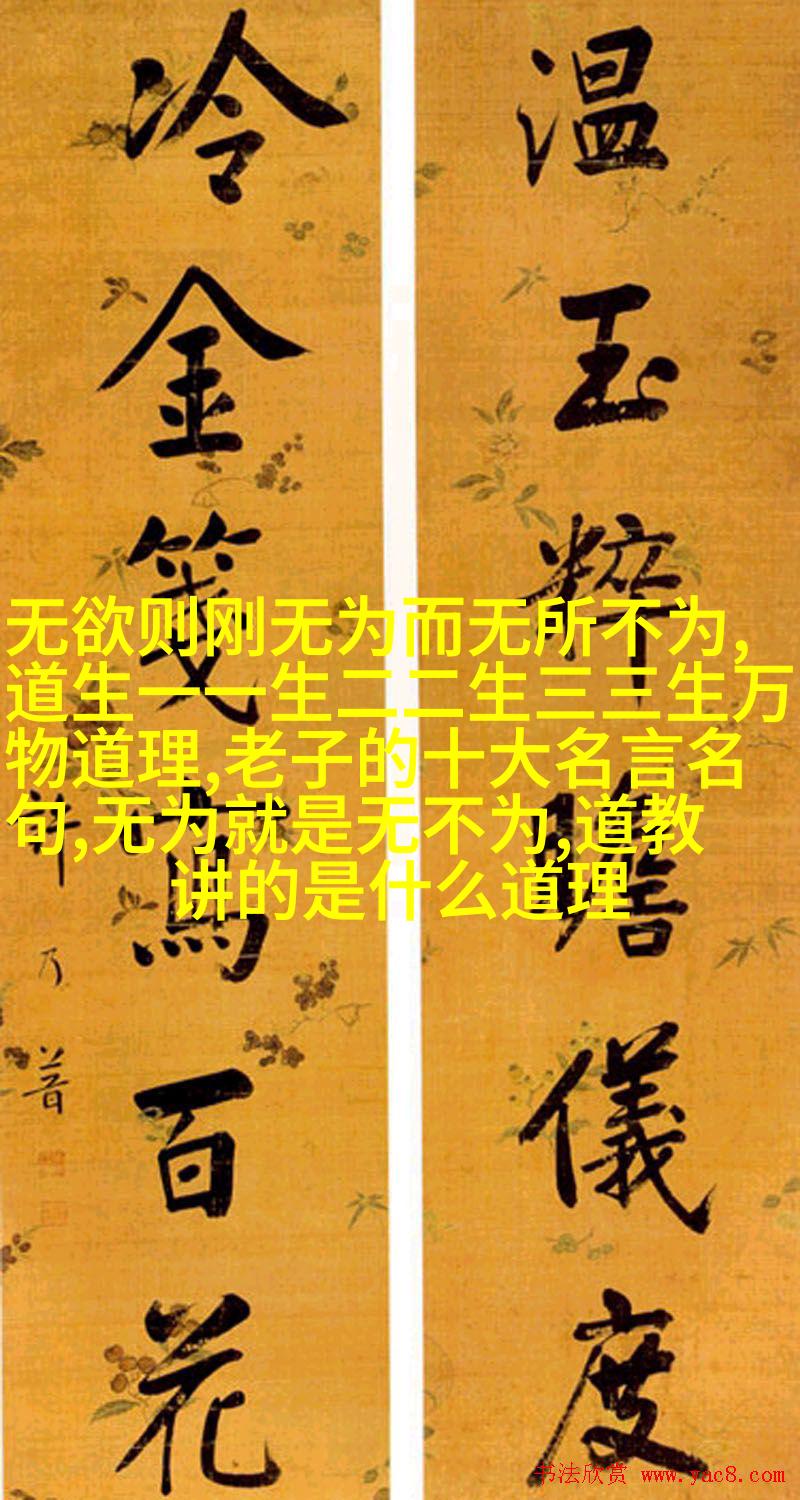 温玉粹瞻儀度
冷金箋寫百花
許乃普
无欲则刚无为而无所不为,
道生一一生二二生三三生万
物道理,老子的十大名言名
句,无为就是无不为,道教
讲的是什么道理
书法欣赏 www.yac8.com